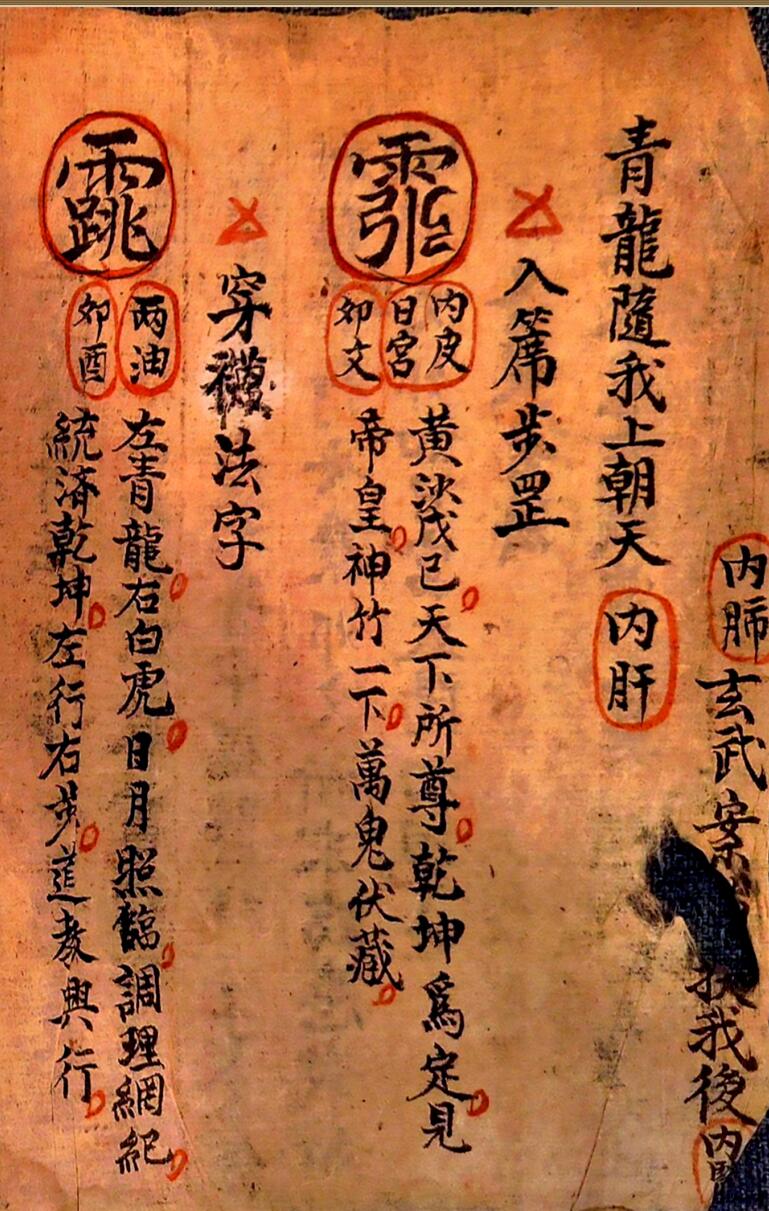 内肺
玄武案
扶我後
内
青龍隨我上朝天
内肝
入席步罡
内皮
日宫
卯文
黄沙戊已天下所尊乾坤爲定見
帝皇神竹一下萬鬼伏藏
穿襪法字
両油
卯酉
左青龍右白虎日月照臨調理網紀
統済乾坤左行右步道教興行